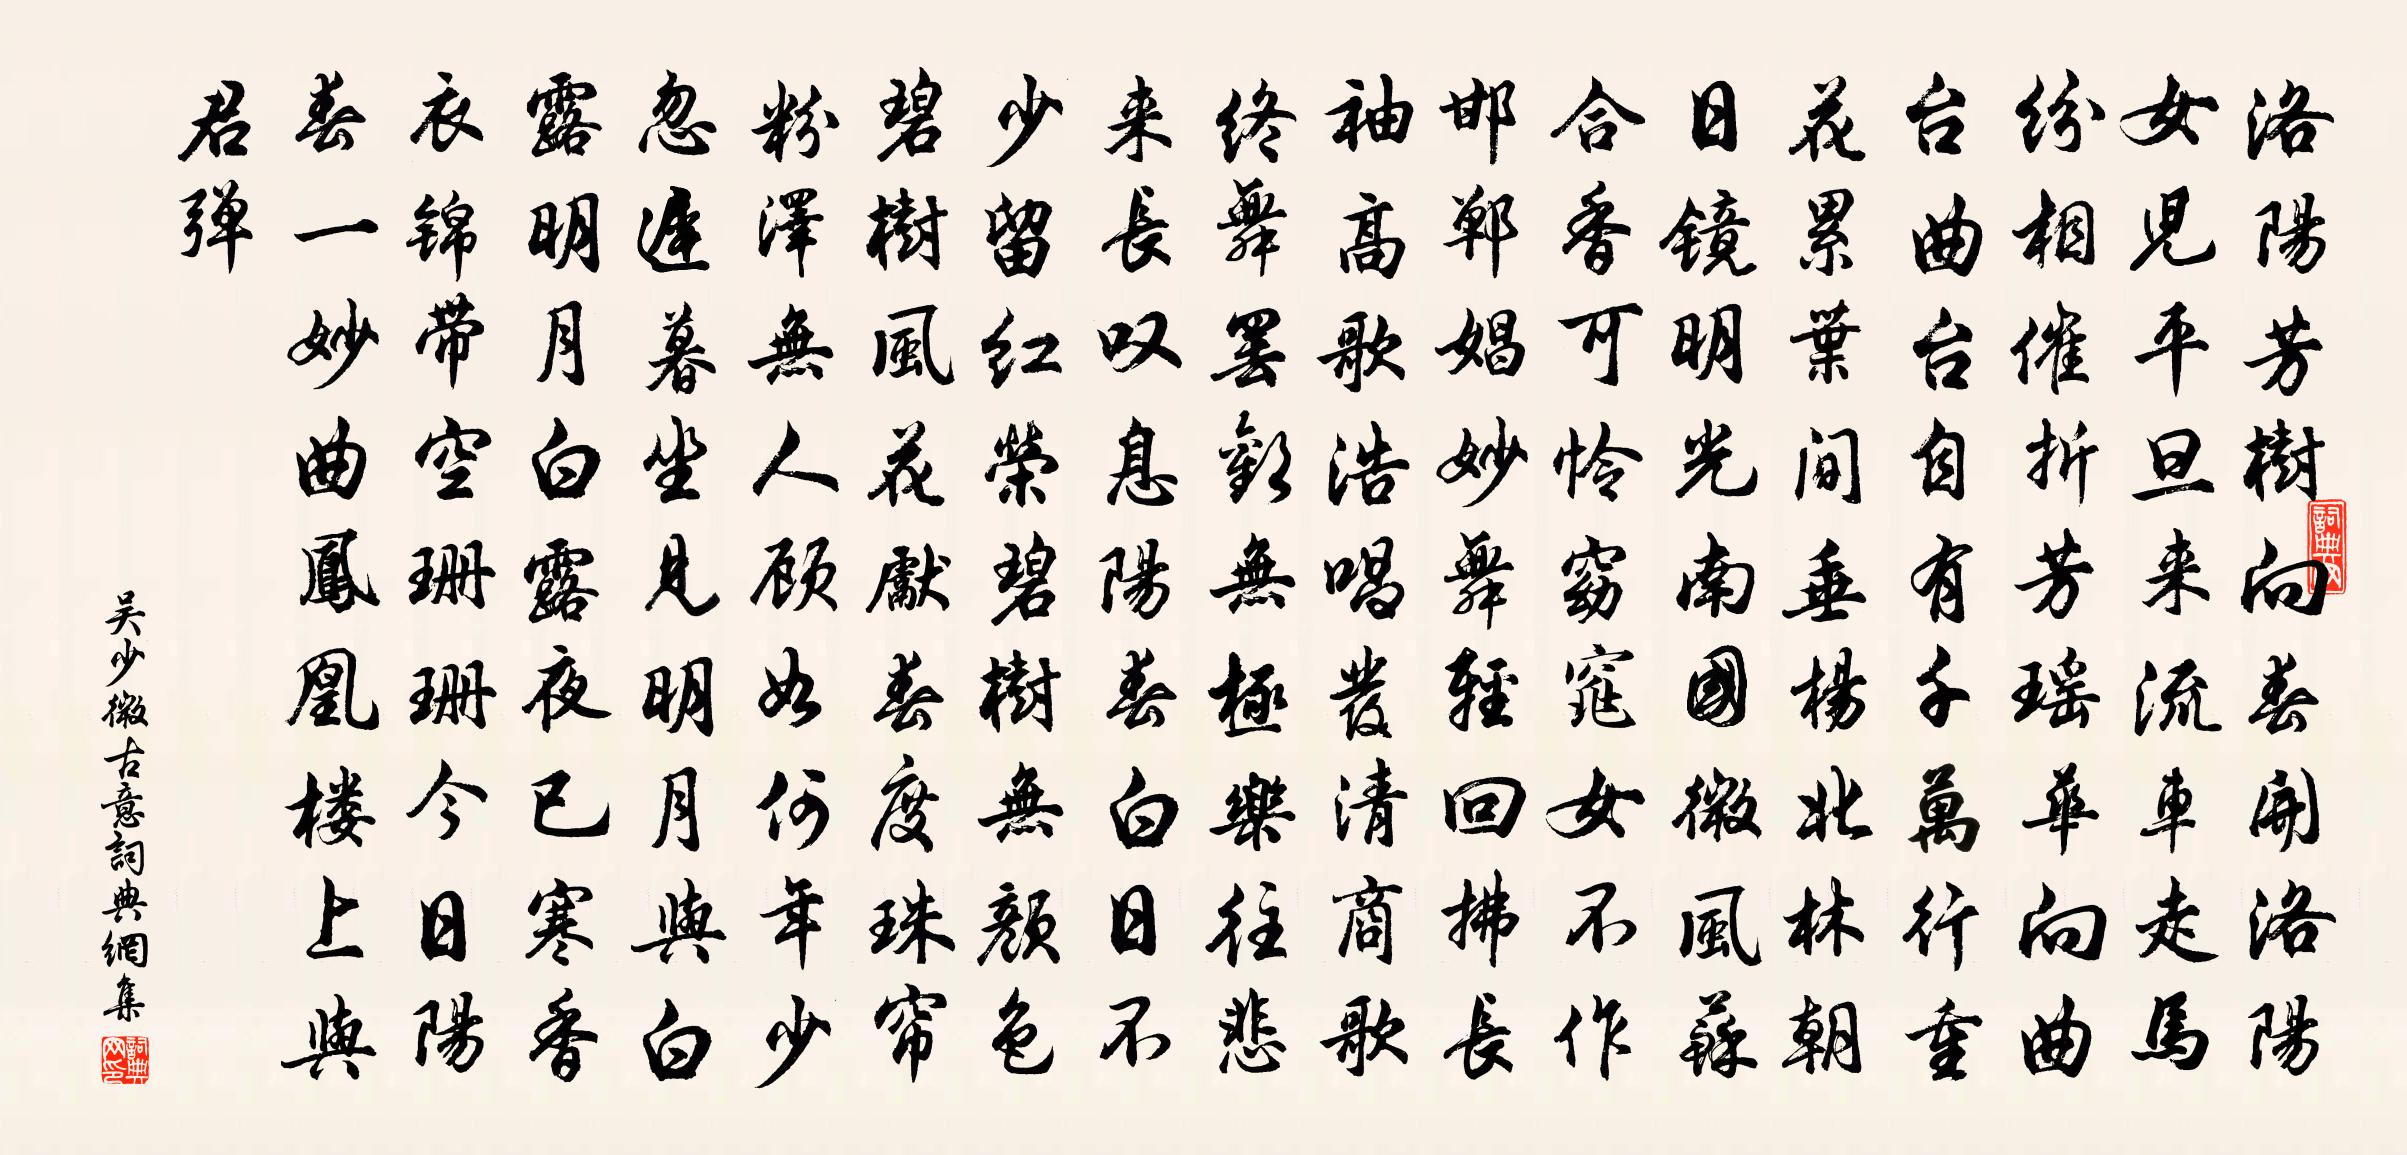 洛陽芳樹向春開洛陽
女児平旦来流車走馬
纷相催折芳瑶華向曲
台曲台自有千萬行重
花累葉间垂楊北林朝
日镜明光南國微風蘇
合香可怜窈窕女不作
邯郸娼妙舞輕回拂長
袖高歌浩唱發清商歌
终舞罢歡無極樂往悲
来長叹息陽春白日不
少留红榮碧樹無顏色
碧樹風花獻春度珠帘
粉澤無人顾如何年少
忽遲暮坐見明月與白
露明月白露夜已寒香
衣锦带空珊珊今日陽
春一妙曲鳳凰楼上與
君弹
吴少微古意詞典網集
詞典网
詞典网印